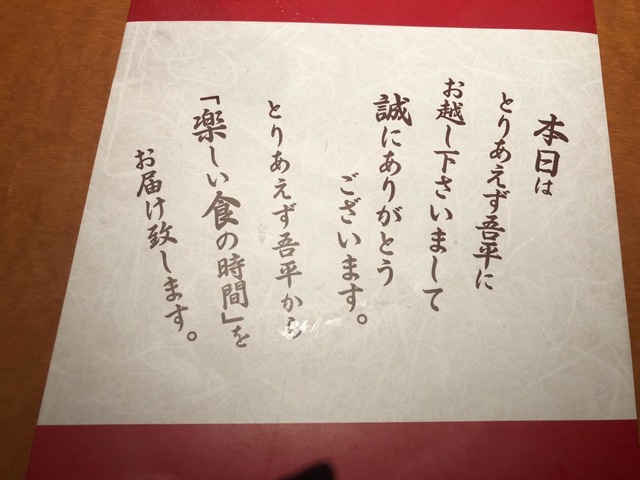 本日は
とりあえず吾平に
お越し下さいまして
誠にありがとう
ございます。
とりあえず吾平から
「楽しい食の時間」を
お届け致します。